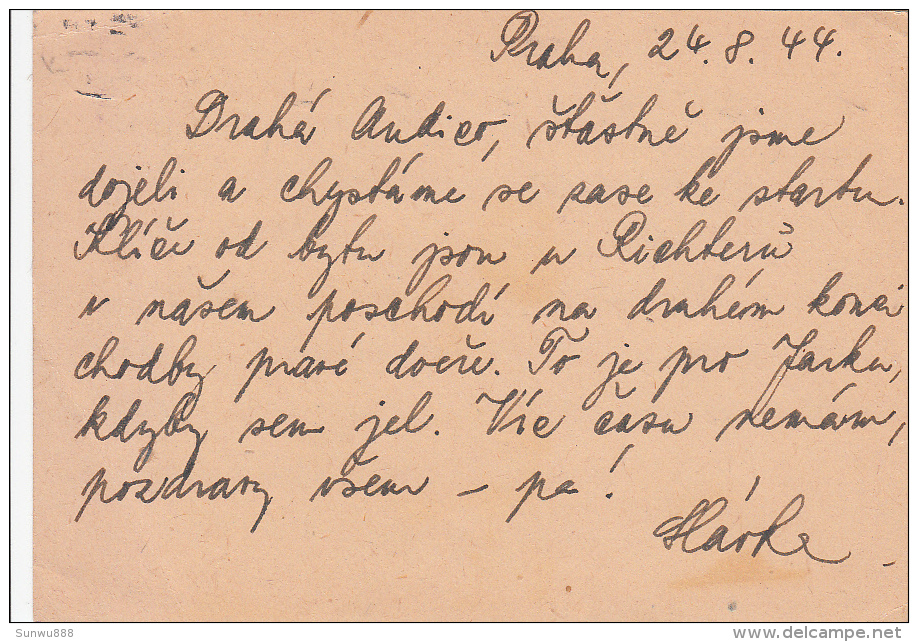 Praha, 24. 8. 44.
Drahá Andico, šťastně jsme
dojeli a chystáme se zase ke startu.
Klíče od bytu jsou u Richterů
v našem poschodí na druhém konci
chodby pravé dveře. To je pro Jarku,
kdyby sem jel. Víc času nemám,
pozdravy všem – pa!
Slávka
Sunwu888
www.delcampe.net